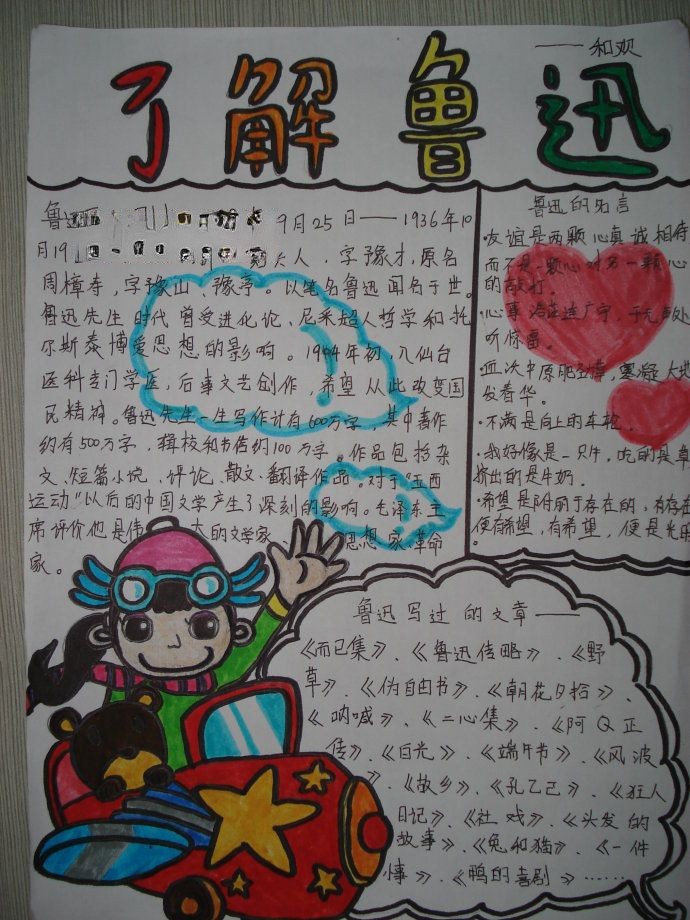 ——和欢
了解鲁迅
鲁迅 9月25日——1936年10
月19 人,字豫才,原名
周樟寿,字豫山、豫亭。以笔名鲁迅闻名于世。
鲁迅先生 时代曾受进化论、尼采超人哲学和托
尔斯泰博爱思想的影响。1904年初,入仙台
医科专门学医,后事文艺创作,希望从此改变国
民精神。鲁迅先生一生写作计有600万字,其中著作
约有500万字,辑校和书信约100万字。作品包括杂
文、短篇小说、评论、散文、翻译作品。对于"五四
运动"以后的中国文学产生了深刻的影响。毛泽东主
席评价他是伟大的文学家、思想家、革命
家。
鲁迅的名言
·友谊是两颗心真诚相待
而不是一颗心对另一颗心
的敲打。
·心事浩茫连广宇,于无声处
听惊雷。
·血沃中原肥劲草,寒凝大地
发春华。
·不满是向上的车轮。
·我好像是一只牛,吃的是草
挤出的是牛奶。
·希望是附丽于存在的,有存在
便有希望,有希望,便是光明
。
鲁迅写过的文章——
《而已集》、《鲁迅传略》、《野
草》、《伪自由书》、《朝花夕拾》、
《呐喊》、《二心集》、《阿Q正
传》、《白光》、《端午节》、《风波
》、《故乡》、《孔乙己》、《狂人
日记》、《社戏》、《头发的
故事》、《兔和猫》、《一件
事》、《鸭的喜剧》……